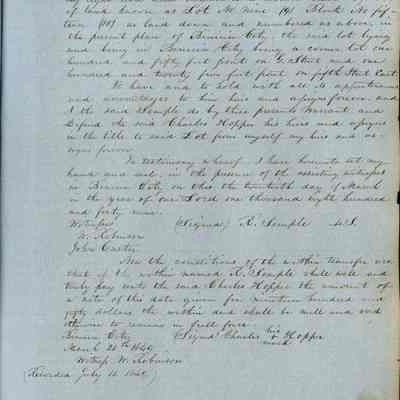 of land known as Lot No. Nine (9) Block No fif-
teen (15) as laid down and numbered as above, in
the present plan of Benicia City, the said lot lying
and being in Benicia City being a corner lot one
hundred and fifty feet front on G. Street and one
hundred and twenty five feet front on fifth Street East.
To have and to hold with all its appurtenances
and advantages to him his heirs and assigns forever and
I the said Semple do by these presents warrant and
Defend the said Charles Hoppe his heirs and assigns
in the title to said Lot from myself my heirs and as-
signs forever.
In testimony whereof I have hereunto set my
hand and seal, in the presence of the assisting witnesses
in Benicia City on this the twentieth day of March
in the year of our Lord one thousand eight hundred
and forty nine.
Witnesses (Signed) R. Semple L.S.
W. Robinson
John
Now the conditions of the within transfer are
that if the within named R. Semple shall well and
truly pay unto the said Charles Hoppe the amount of
a note of this date given for nineteen hundred and
fifty dollars the within deed shall be null and void
otherwise to remain in full force.
Benicia City (Signed Charles his x mark Hoppe
March 20th 1849
Witness W. Robinson
(Recorded July 11 1849)